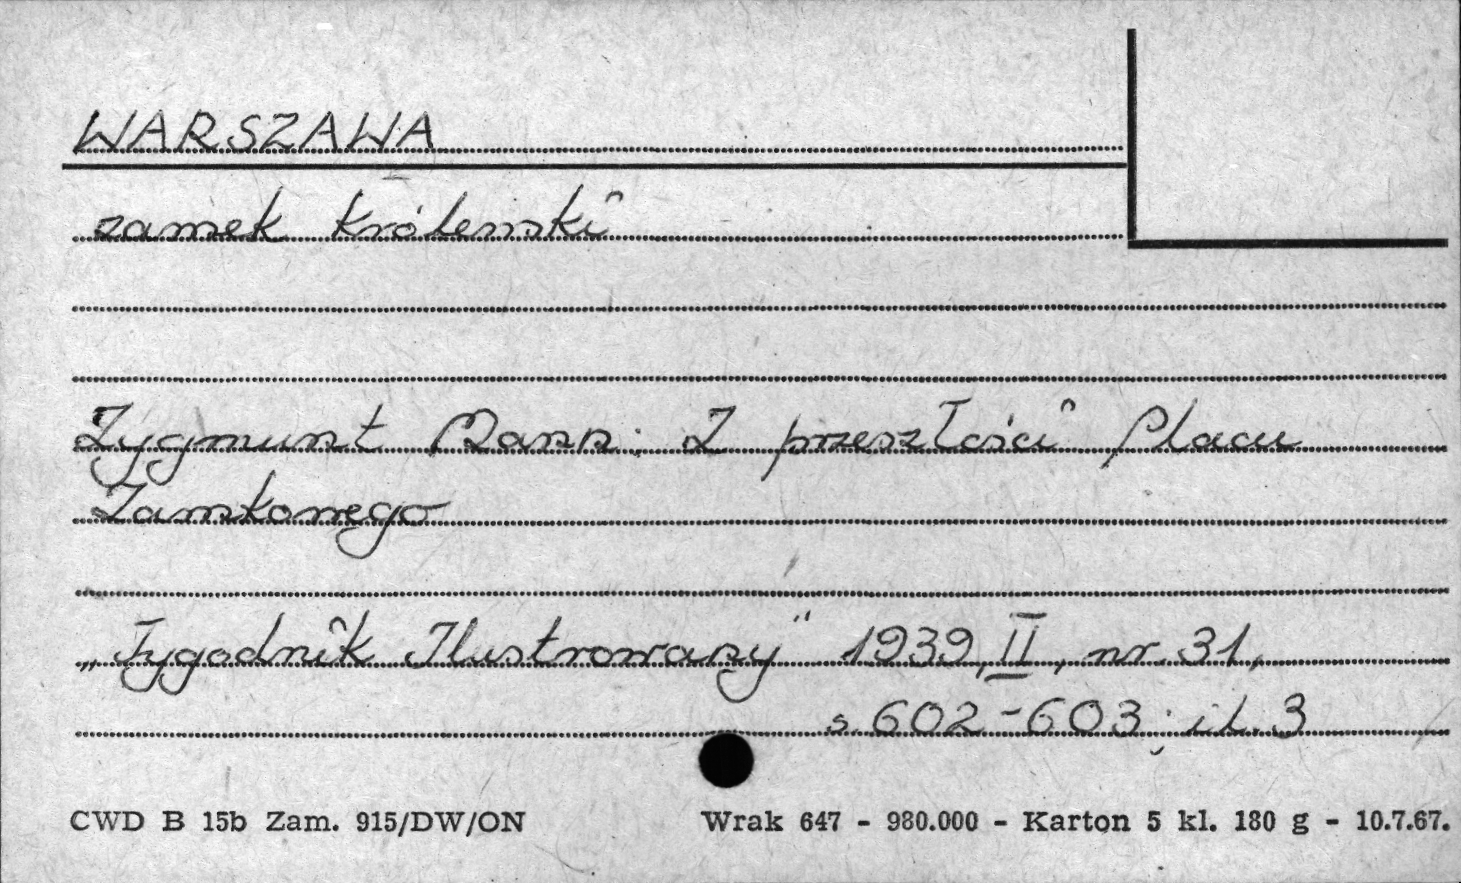 WARSZAWA
zamek królewski
Zygmunt Mann: Z przeszłości Placu
Zamkowego
„Tygodnik Ilustrowany" 1939, II, nr. 31,
s. 602-603; il. 3
CWD B 15b Zam. 915/DW/ON Wrak 647 - 980.000 - Karton 5 kl. 180 g - 10.7.67.